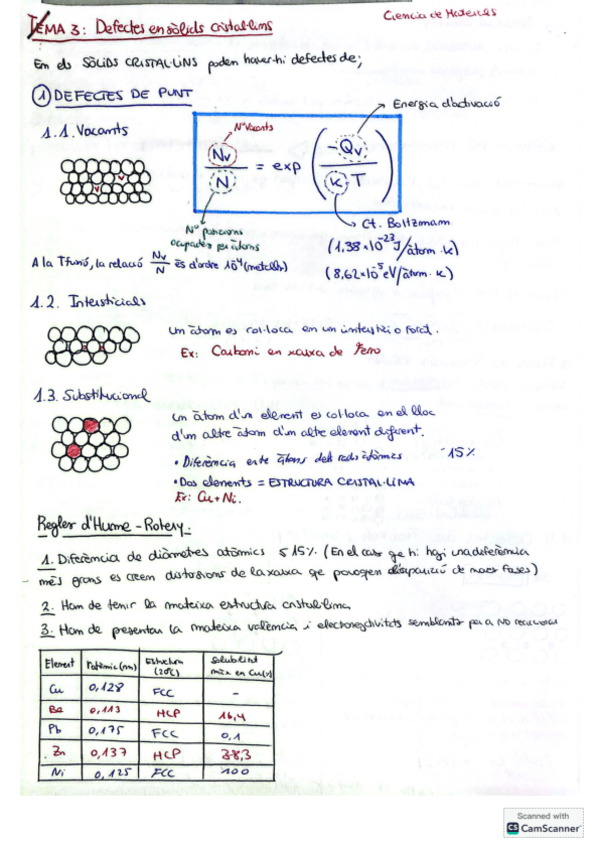 TEMA 3: Defectes en sòlids cristal·lins
Ciencia de Materials
En els SÒLIDS CRISTAL·LINS poden haver-hi defectes de;
1 DEFECTES DE PUNT
Energia d'activació
1.1. Vacants
Nº Vacants
Nv / N = exp ( -Qv / k·T )
Nº posicions
ocupades per àtoms
Ct. Boltzmann
(1,38×10⁻²³ J/àtom·k)
(8,62×10⁻⁵ eV/àtom·k)
A la Tfusió, la relació Nv/N és d'ordre 10⁻⁴ (metalls)
1.2. Intersticials
Un àtom es col·loca en un intersticio forat.
Ex: Carboni en xarxa de Ferro
1.3. Substitucional
un àtom d'un element es col·loca en el lloc
d'un altre àtom d'un altre element diferent.
• Diferència entre dels radis atòmics ~15%
• Dos elements = ESTRUCTURA CRISTAL·LINA
Ex: Cu + Ni.
Regles d'Hume-Rotery:
1. Diferència de diàmetres atòmics ≤ 15%. (En el cas qe hi hagi una diferència
més grans es creen distorsions de la xarxa qe disparició de noves fases)
2. Han de tenir la mateixa estructura cristal·lina
3. Han de presentar la mateixa valència i electronegtivitats semblants per a no reaccionar
Element Ratòmic (nm) Estructura (20ºC) Solubilitat màx en Cu(%)
Cu 0,128 FCC -
Be 0,113 HCP 16,4
Pb 0,175 FCC 0,1
Zn 0,137 HCP 38,3
Ni 0,125 FCC 100
Scanned with
CS CamScanner